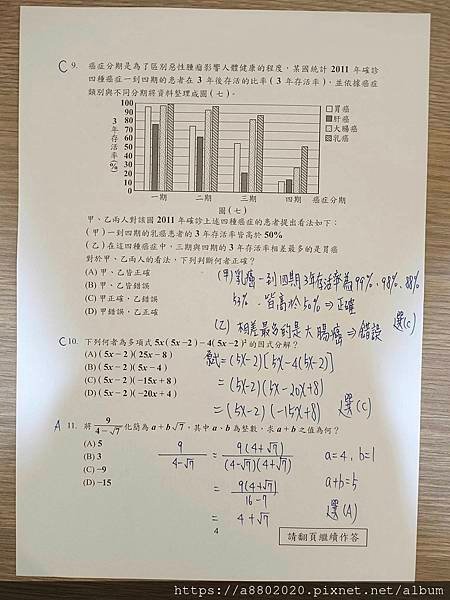 C 9. 癌症分期是為了區別惡性腫瘤影響人體健康的程度,某國統計 2011 年確診
四種癌症一到四期的患者在 3 年後存活的比率(3 年存活率),並依據癌症
類別與不同分期將資料整理成圖(七)。
3年存活率(%)
100
90
80
70
60
50
40
30
20
10
0
胃癌
肝癌
大腸癌
乳癌
一期 二期 三期 四期 癌症分期
圖(七)
甲、乙兩人對該國 2011 年確診上述四種癌症的患者提出看法如下:
(甲)一到四期的乳癌患者的 3 年存活率皆高於 50%
(乙)在這四種癌症中,三期與四期的 3 年存活率相差最多的是胃癌
對於甲、乙兩人的看法,下列判斷何者正確?
(A) 甲、乙皆正確
(B) 甲、乙皆錯誤
(C) 甲正確,乙錯誤
(D) 甲錯誤,乙正確
(甲)乳癌一到四期3年存活率為99%、98%、88%
53%、皆高於50% ⇒ 正確
(乙) 相差最多的是大腸癌 ⇒ 錯誤
選(C)
C 10. 下列何者為多項式 5x(5x−2)−4(5x−2)² 的因式分解?
(A) (5x−2)(25x−8)
(B) (5x−2)(5x−4)
(C) (5x−2)(−15x+8)
(D) (5x−2)(−20x+4)
原式 = (5x-2)[5x-4(5x-2)]
= (5x-2)(5x-20x+8)
= (5x-2)(-15x+8) 選(C)
A 11. 將 9/(4−√7) 化簡為 a+b√7,其中 a、b 為整數,求 a+b 之值為何?
(A) 5
(B) 3
(C) −9
(D) −15
9/(4-√7) = 9(4+√7)/(4-√7)(4+√7)
= 9(4+√7)/(16-7)
= 4+√7
a=4, b=1
a+b=5
選(A)
4
請翻頁繼續作答
https://a8802020.pixnet.net/album